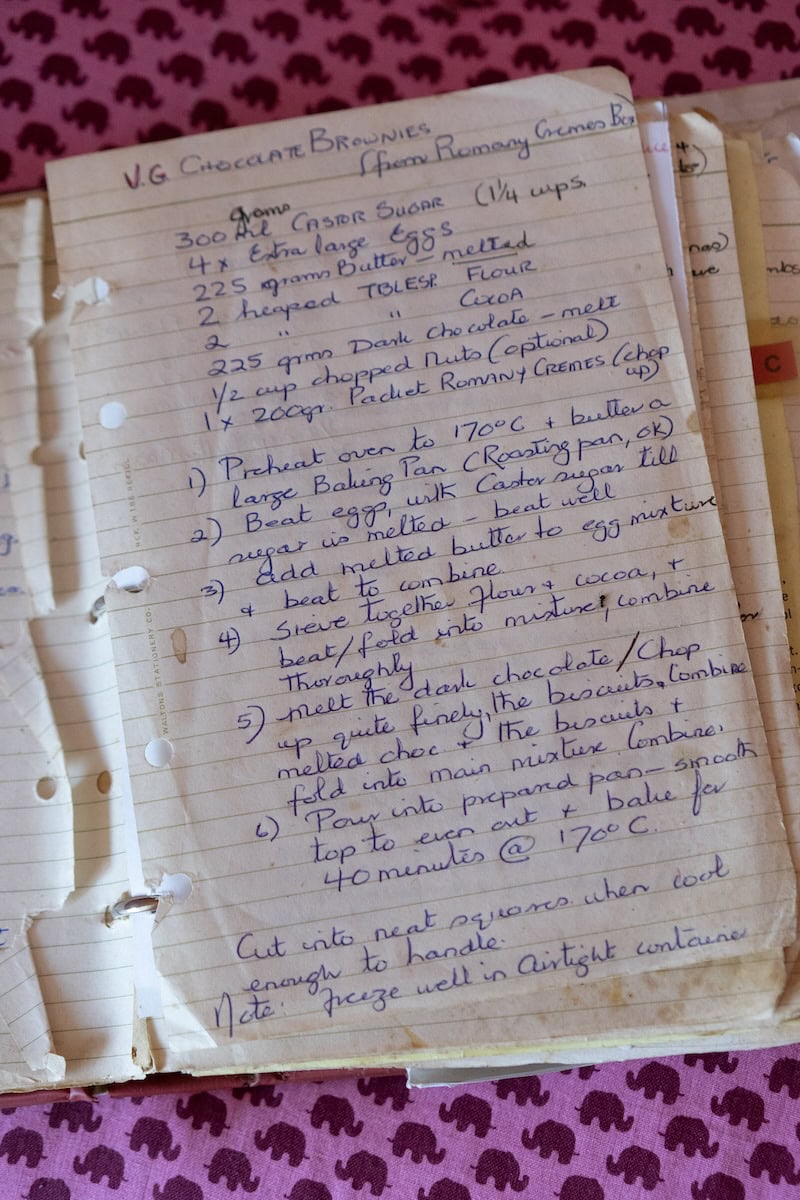 V.G. CHOCOLATE BROWNIES
(from Romany Cremes Box
grams
300 ml CASTOR SUGAR (1 1/4 cups.
4 x Extra large Eggs
225 grams Butter - melted
2 heaped TBLESP. FLOUR
2 " " COCOA
225 grms Dark Chocolate - melt
1/2 cup chopped Nuts (optional)
1 x 200gr. Packet ROMANY CREMES (chop
up)
1) Preheat oven to 170°C + butter a
large Baking Pan (Roasting pan, ok)
2) Beat eggs, with Castor sugar till
sugar is melted - beat well
3) add melted butter to egg mixture
+ beat to combine.
4) Sieve together flour + cocoa, +
beat/fold into mixture, combine
thoroughly
5) melt the dark chocolate / Chop
up quite finely, the biscuits. Combine
melted choc + the biscuits +
fold into main mixture Combine.
6) Pour into prepared pan - smooth
top to even out + bake for
40 minutes @ 170°C.
Cut into neat squares when cool
enough to handle.
Note: freeze well in airtight container
WALTONS STATIONERY CO.
C